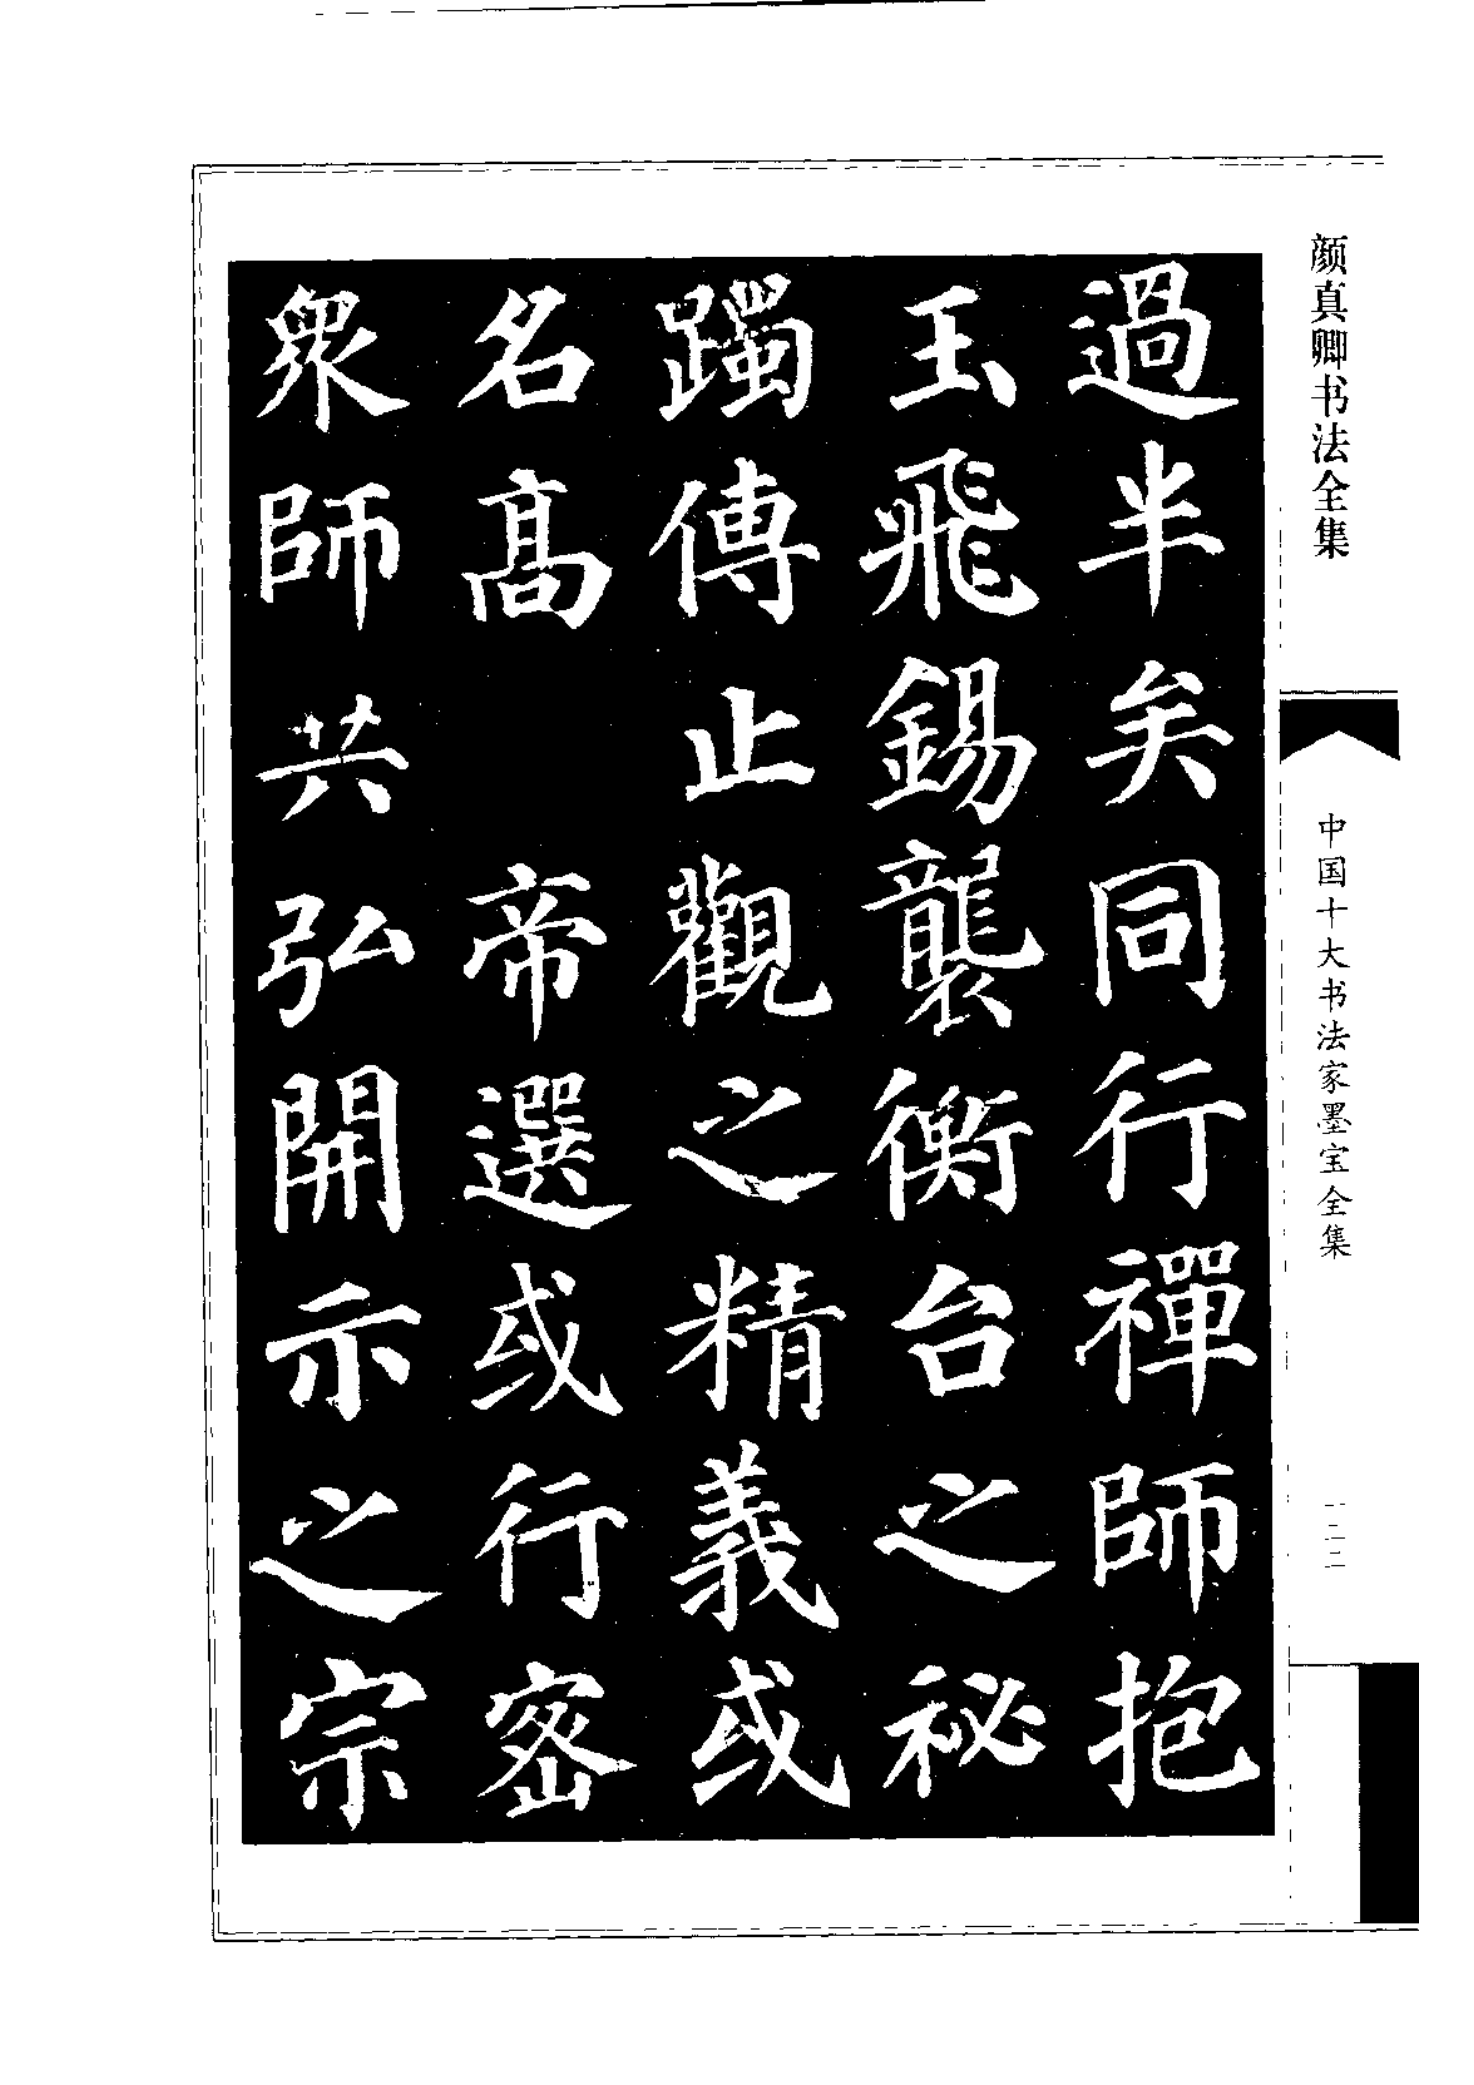 颜真卿书法全集
中国十大书法家墨宝全集
過半矣同行禪師抱
玉飛錫襲衡台之祕
躅傳止觀之精義或
名高 帝選或行密
衆師共弘開示之宗